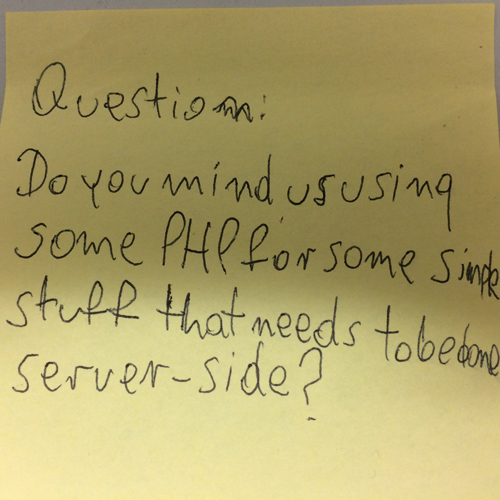 Question:
Do you mind us using
some PHP for some simple
stuff that needs to be done
server-side?